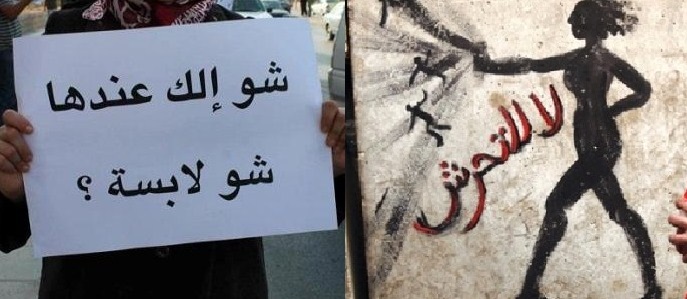 شو إلك عندها
شو لابسة ؟
لا للتحرش